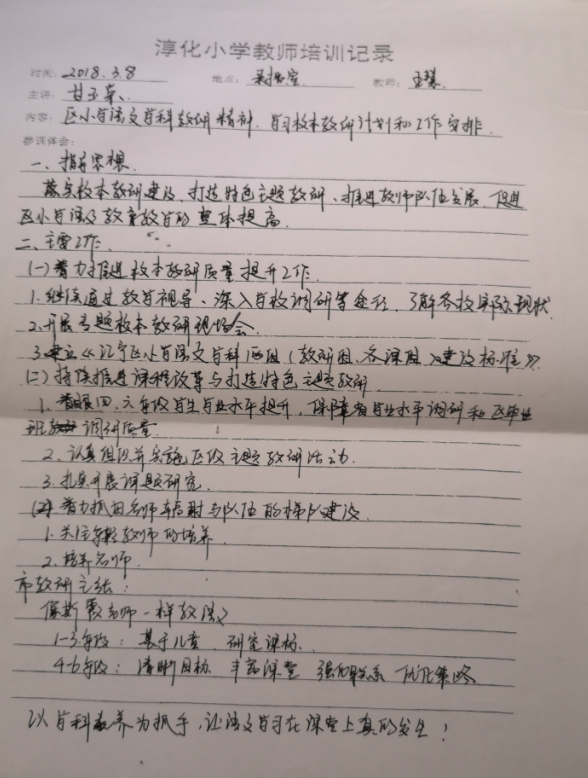 淳化小学教师培训记录
时间：2018.3.8 地点： 教师：王琪
主讲：甘玉荣
内容：区小学语文学科教研精神、学习校本教研计划和工作安排。
参训体会：
一、指导思想
落实校本教研建设，打造特色主题教研、推进教师队伍发展，促进
区小学语文教育教学的整体提高。
二、主要工作
(一)着力推进校本教研质量提升工作
1.继续通过教学视导、深入学校调研等途径，了解各校实际现状
2.开展专题校本教研现场会
3.建立《江宁区小学语文学科团(教研团、备课团)建设标准》。
(二)持续推进课程改革与打造特色主题教研
1.着眼四、六年级学生学业水平提升，保障省学业水平调研和区毕业
班调研质量
2.认真组织并实施区级主题教研活动
3.扎实开展课题研究
着力抓团名师辐射与队伍的梯队建设
1.关注年轻教师的培养
2.培养名师
市教研总结：
像斯霞老师一样教语文
1-3年级：基于儿童 研究课标
4-6年级：清晰目标 丰富课堂 强化联系 优化策略
以学科素养为抓手，让语文学习在课堂上真的发生！